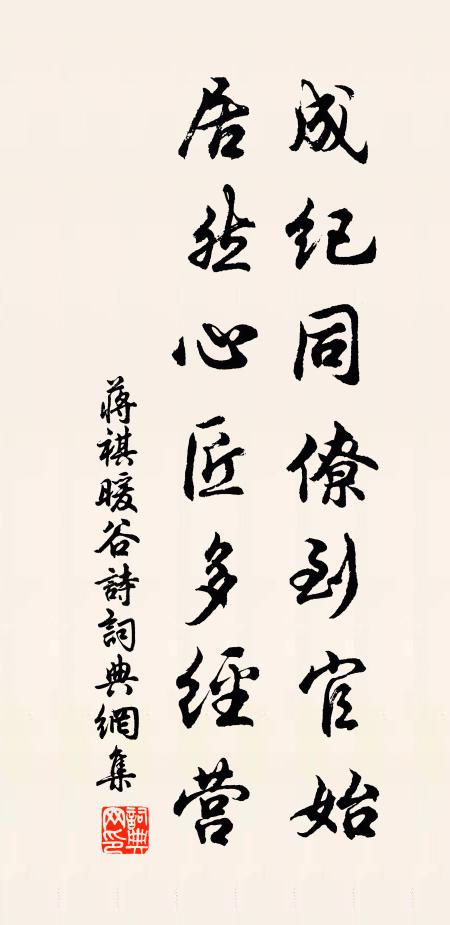 成纪同僚到官始
居然心匠多经营
蒋祺暖谷詩詞典網集
詞典網印